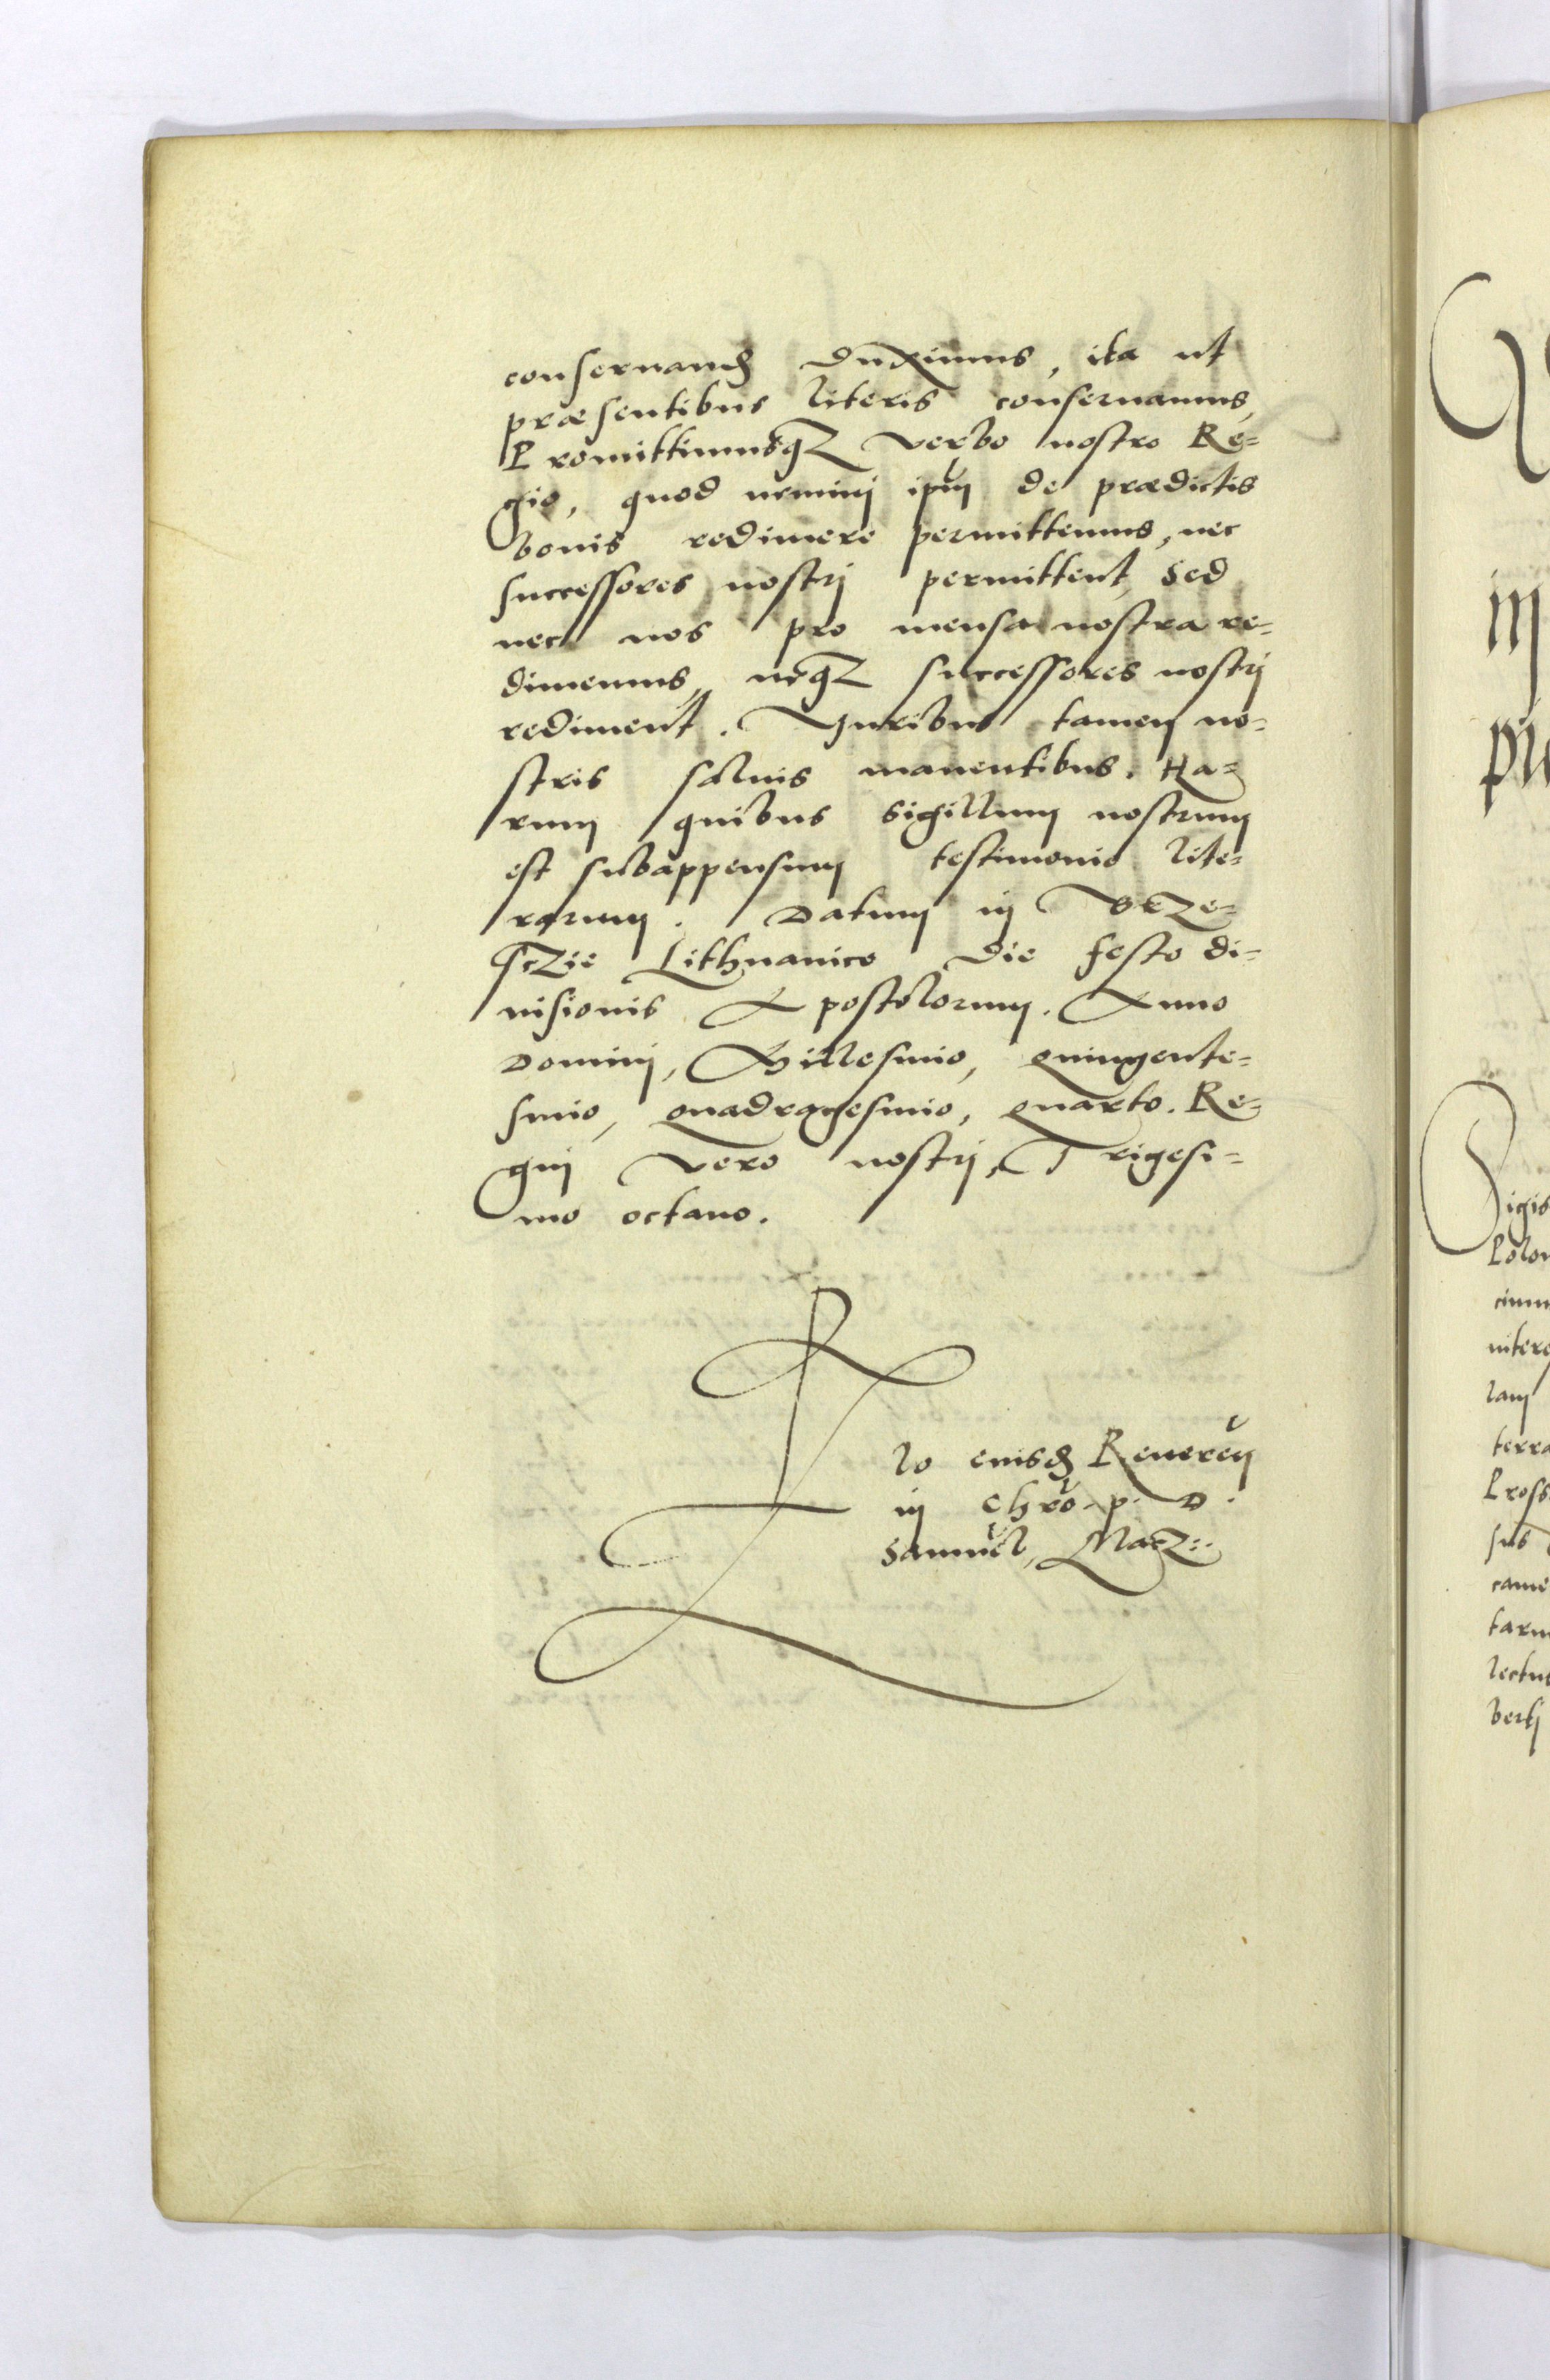 conseruand duximus, ita ut
præsentibus literis conseruamus,
Promittimusq₃ verbo nostro Re=
gio, quod nemini ipm̃ de prædictis
bonis redimere permittemus, nec
successores nostri permittent, Sed
nec nos pro mensa nostra re=
dimemus, neq₃ successores nostri
rediment. Iuribus tamen no=
stris saluis manentibus. Ha=
rum quibus Sigillum nostrum
est subappensum testimonio lite=
rarum. Datum in Brze=
sczie Lithuanico Die festo di=
uisionis Apostolorum. Anno
Domini, Millesimo, quingente=
simo, quadragesimo, quarto. Re=
gni vero nostri, Trigesi=
mo octauo.
Rlo eiusd Reueren̄
in Chrõ p. D.
Samuel, Macz:.
in
Sigis
Polon
cium
lam
terra
Pross
sus
tarum
lectus
berti